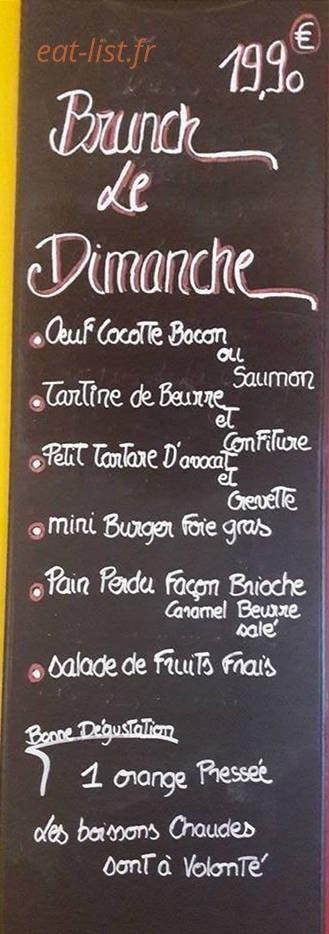 eat-list.fr
19,90 €
Brunch
Le
Dimanche
Oeuf Cocotte Bacon
ou
Saumon
Tartine de Beurre
et
Confiture
Petit Tartare D'avocat
et
Crevette
mini Burger Foie gras
Pain Perdu Façon Brioche
Caramel Beurre
salé
salade de Fruits Frais
Bonne Dégustation
1 orange Pressée
Les boissons Chaudes
sont à Volonté